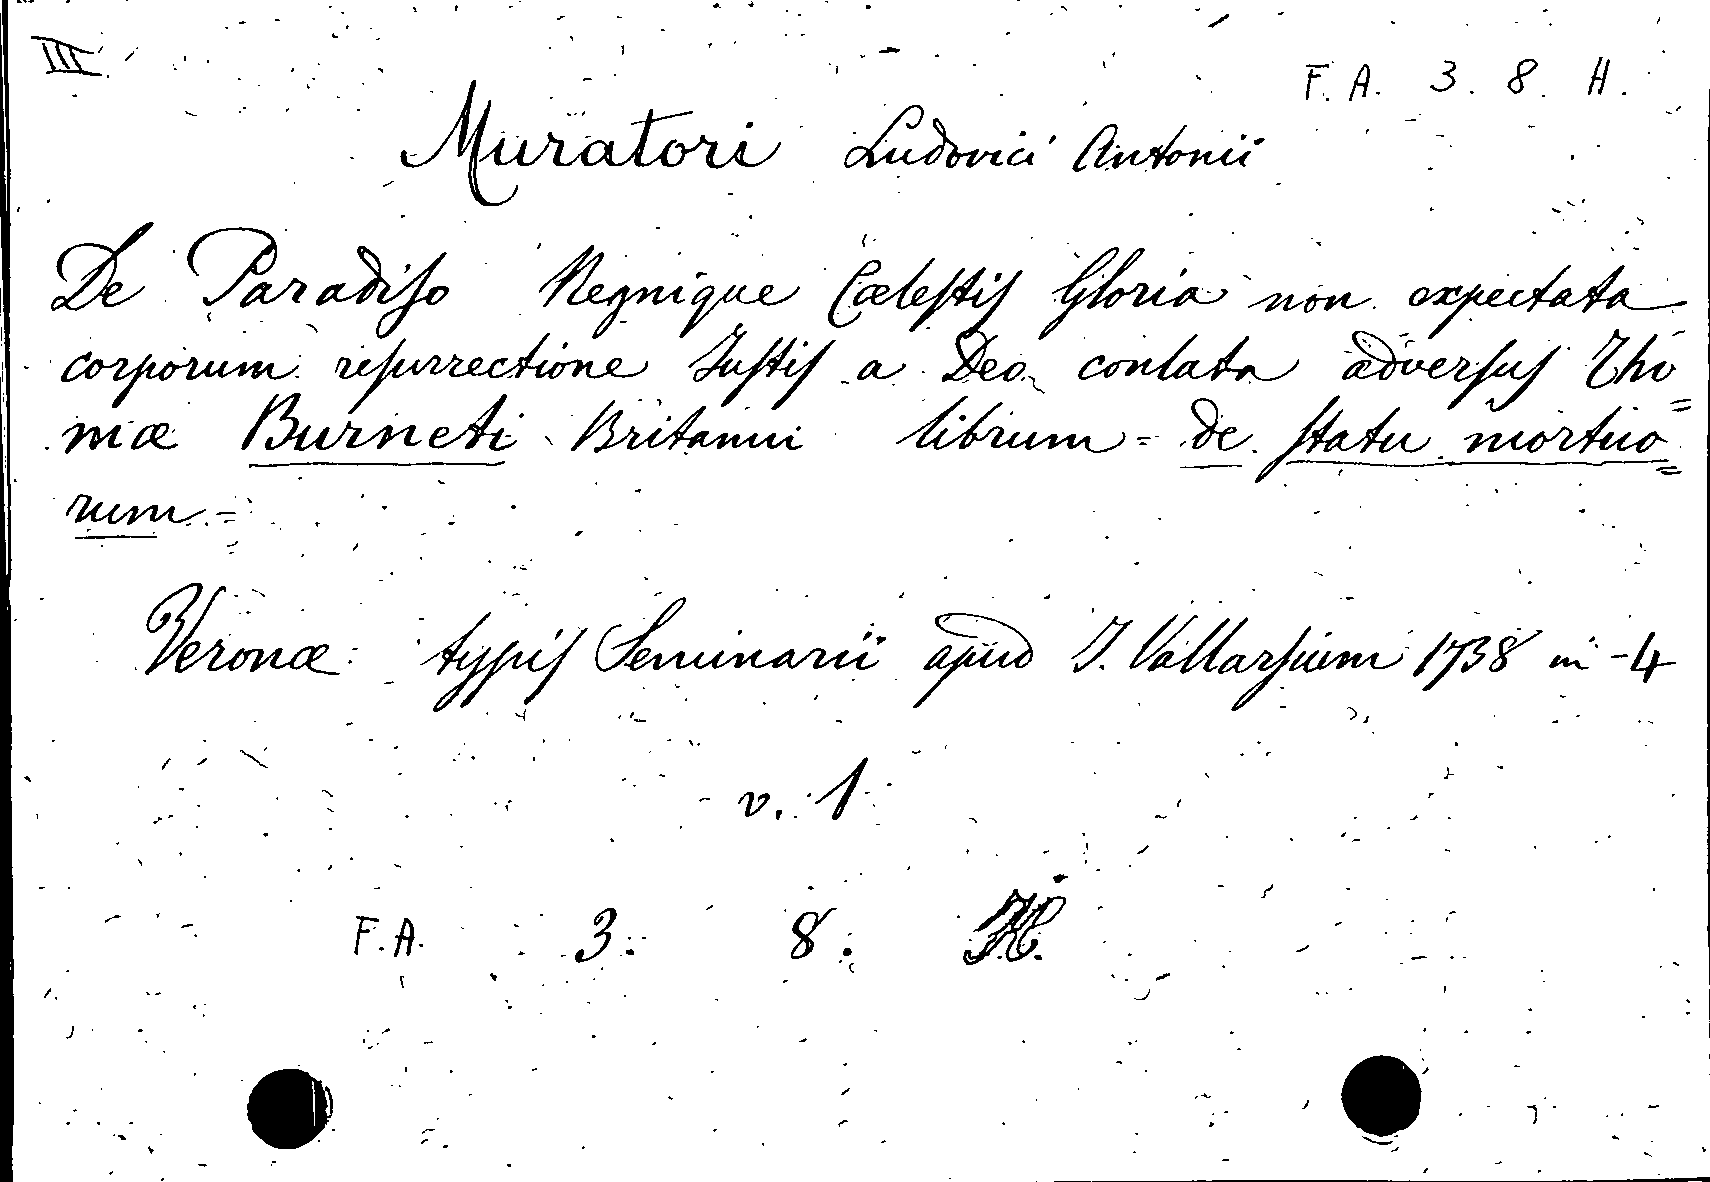 III
F. A. 3. 8. H.
Muratori Ludovici Antonii
De Paradiſo Regnique Cœleſtiſ Gloria non expectata
corporum reſurrectione Juſtiſ a Deo conlata adverſuſ Tho=
mæ Burneti Britanni librum = de ſtatu mortuo=
rum =
Veronæ typiſ Seminarii apud J. Vallarſium 1738 in-4
v. 1
F.A. 3. 8. H.